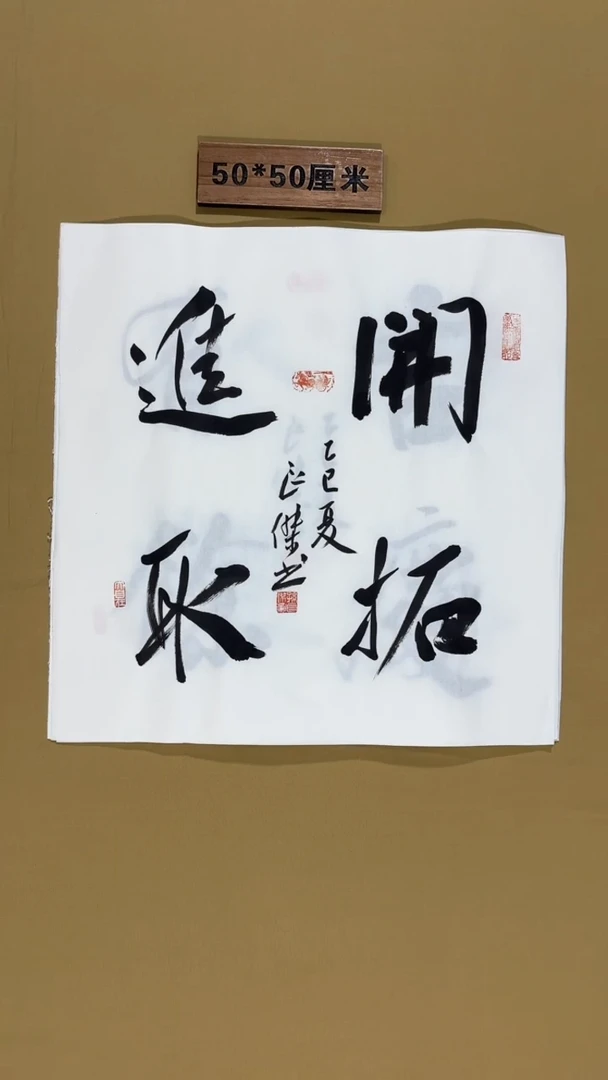 50*50厘米
開拓
進取
乙巳夏
正傑书